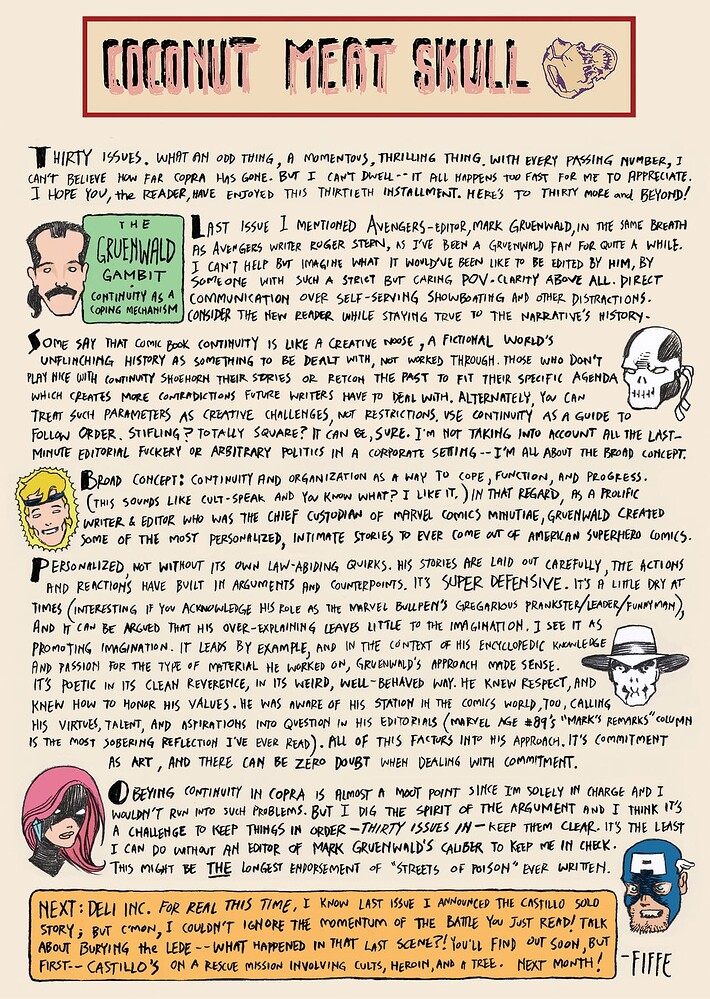 COCONUT MEAT SKULL
THIRTY ISSUES. WHAT AN ODD THING, A MOMENTOUS, THRILLING THING. WITH EVERY PASSING NUMBER, I
CAN'T BELIEVE HOW FAR COPRA HAS GONE. BUT I CAN'T DWELL-- IT ALL HAPPENS TOO FAST FOR ME TO APPRECIATE.
I HOPE YOU, the READER, HAVE ENJOYED THIS THIRTIETH INSTALLMENT. HERE'S TO THIRTY MORE and BEYOND!
THE
GRUENWALD
GAMBIT
·
CONTINUITY AS A
COPING MECHANISM
LAST ISSUE I MENTIONED AVENGERS-EDITOR, MARK GRUENWALD, IN THE SAME BREATH
AS AVENGERS WRITER ROGER STERN, AS I'VE BEEN A GRUENWALD FAN FOR QUITE A WHILE.
I CAN'T HELP BUT IMAGINE WHAT IT WOULD'VE BEEN LIKE TO BE EDITED BY HIM, BY
SOMEONE WITH SUCH A STRICT BUT CARING POV. CLARITY ABOVE ALL. DIRECT
COMMUNICATION OVER SELF-SERVING SHOWBOATING AND OTHER DISTRACTIONS.
CONSIDER THE NEW READER WHILE STAYING TRUE TO THE NARRATIVE'S HISTORY.
SOME SAY THAT COMIC BOOK CONTINUITY IS LIKE A CREATIVE NOOSE, A FICTIONAL WORLD'S
UNFLINCHING HISTORY AS SOMETHING TO BE DEALT WITH, NOT WORKED THROUGH. THOSE WHO DON'T
PLAY NICE WITH CONTINUITY SHOEHORN THEIR STORIES OR RETCON THE PAST TO FIT THEIR SPECIFIC AGENDA
WHICH CREATES MORE CONTRADICTIONS FUTURE WRITERS HAVE TO DEAL WITH. ALTERNATELY, YOU CAN
TREAT SUCH PARAMETERS AS CREATIVE CHALLENGES, NOT RESTRICTIONS. USE CONTINUITY AS A GUIDE TO
FOLLOW ORDER. STIFLING? TOTALLY SQUARE? IT CAN BE, SURE. I'M NOT TAKING INTO ACCOUNT ALL THE LAST-
MINUTE EDITORIAL FUCKERY OR ARBITRARY POLITICS IN A CORPORATE SETTING -- I'M ALL ABOUT THE BROAD CONCEPT.
BROAD CONCEPT: CONTINUITY AND ORGANIZATION AS A WAY TO COPE, FUNCTION, AND PROGRESS.
(THIS SOUNDS LIKE CULT-SPEAK AND YOU KNOW WHAT? I LIKE IT.) IN THAT REGARD, AS A PROLIFIC
WRITER & EDITOR WHO WAS THE CHIEF CUSTODIAN OF MARVEL COMICS MINUTIAE, GRUENWALD CREATED
SOME OF THE MOST PERSONALIZED, INTIMATE STORIES TO EVER COME OUT OF AMERICAN SUPERHERO COMICS.
PERSONALIZED, NOT WITHOUT ITS OWN LAW-ABIDING QUIRKS. HIS STORIES ARE LAID OUT CAREFULLY, THE ACTIONS
AND REACTIONS HAVE BUILT IN ARGUMENTS AND COUNTERPOINTS. IT'S SUPER DEFENSIVE. IT'S A LITTLE DRY AT
TIMES (INTERESTING IF YOU ACKNOWLEDGE HIS ROLE AS THE MARVEL BULLPEN'S GREGARIOUS PRANKSTER/LEADER/FUNNYMAN),
AND IT CAN BE ARGUED THAT HIS OVER-EXPLAINING LEAVES LITTLE TO THE IMAGINATION. I SEE IT AS
PROMOTING IMAGINATION. IT LEADS BY EXAMPLE, AND IN THE CONTEXT OF HIS ENCYCLOPEDIC KNOWLEDGE
AND PASSION FOR THE TYPE OF MATERIAL HE WORKED ON, GRUENWALD'S APPROACH MADE SENSE.
IT'S POETIC IN ITS CLEAN REVERENCE, IN ITS WEIRD, WELL-BEHAVED WAY. HE KNEW RESPECT, AND
KNEW HOW TO HONOR HIS VALUES. HE WAS AWARE OF HIS STATION IN THE COMICS WORLD, TOO, CALLING
HIS VIRTUES, TALENT, AND ASPIRATIONS INTO QUESTION IN HIS EDITORIALS (MARVEL AGE #89'S "MARK'S REMARKS" COLUMN
IS THE MOST SOBERING REFLECTION I'VE EVER READ). ALL OF THIS FACTORS INTO HIS APPROACH. IT'S COMMITMENT
AS ART, AND THERE CAN BE ZERO DOUBT WHEN DEALING WITH COMMITMENT.
OBEYING CONTINUITY IN COPRA IS ALMOST A MOOT POINT SINCE I'M SOLELY IN CHARGE AND I
WOULDN'T RUN INTO SUCH PROBLEMS. BUT I DIG THE SPIRIT OF THE ARGUMENT AND I THINK IT'S
A CHALLENGE TO KEEP THINGS IN ORDER -THIRTY ISSUES IN- KEEP THEM CLEAR. IT'S THE LEAST
I CAN DO WITHOUT AN EDITOR OF MARK GRUENWALD'S CALIBER TO KEEP ME IN CHECK.
THIS MIGHT BE THE LONGEST ENDORSEMENT OF "STREETS OF POISON" EVER WRITTEN.
NEXT: DELI INC. FOR REAL THIS TIME, I KNOW LAST ISSUE I ANNOUNCED THE CASTILLO SOLO
STORY; BUT C'MON, I COULDN'T IGNORE THE MOMENTUM OF THE BATTLE YOU JUST READ! TALK
ABOUT BURYING the LEDE -- WHAT HAPPENED IN THAT LAST SCENE?! YOU'LL FIND OUT SOON, BUT
FIRST-- CASTILLO'S ON A RESCUE MISSION INVOLVING CULTS, HEROIN, AND A TREE. NEXT MONTH!
-FIFFE